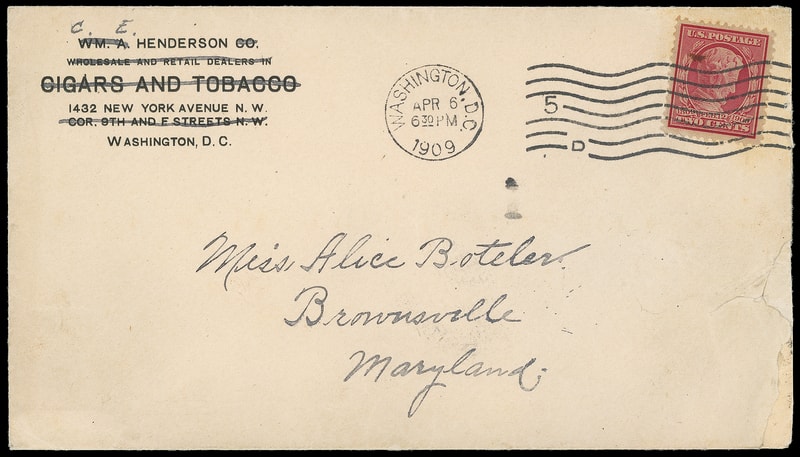 C. E.
WM. A. HENDERSON CO.
WHOLESALE AND RETAIL DEALERS IN
CIGARS AND TOBACCO
1432 NEW YORK AVENUE N. W.
COR. 9TH AND F STREETS N. W.
WASHINGTON, D. C.
WASHINGTON, D.C.
APR 6
630 PM
1909
5
D
U.S. POSTAGE
TWO CENTS
Miss Alice Boteler.
Brownsville
Maryland;